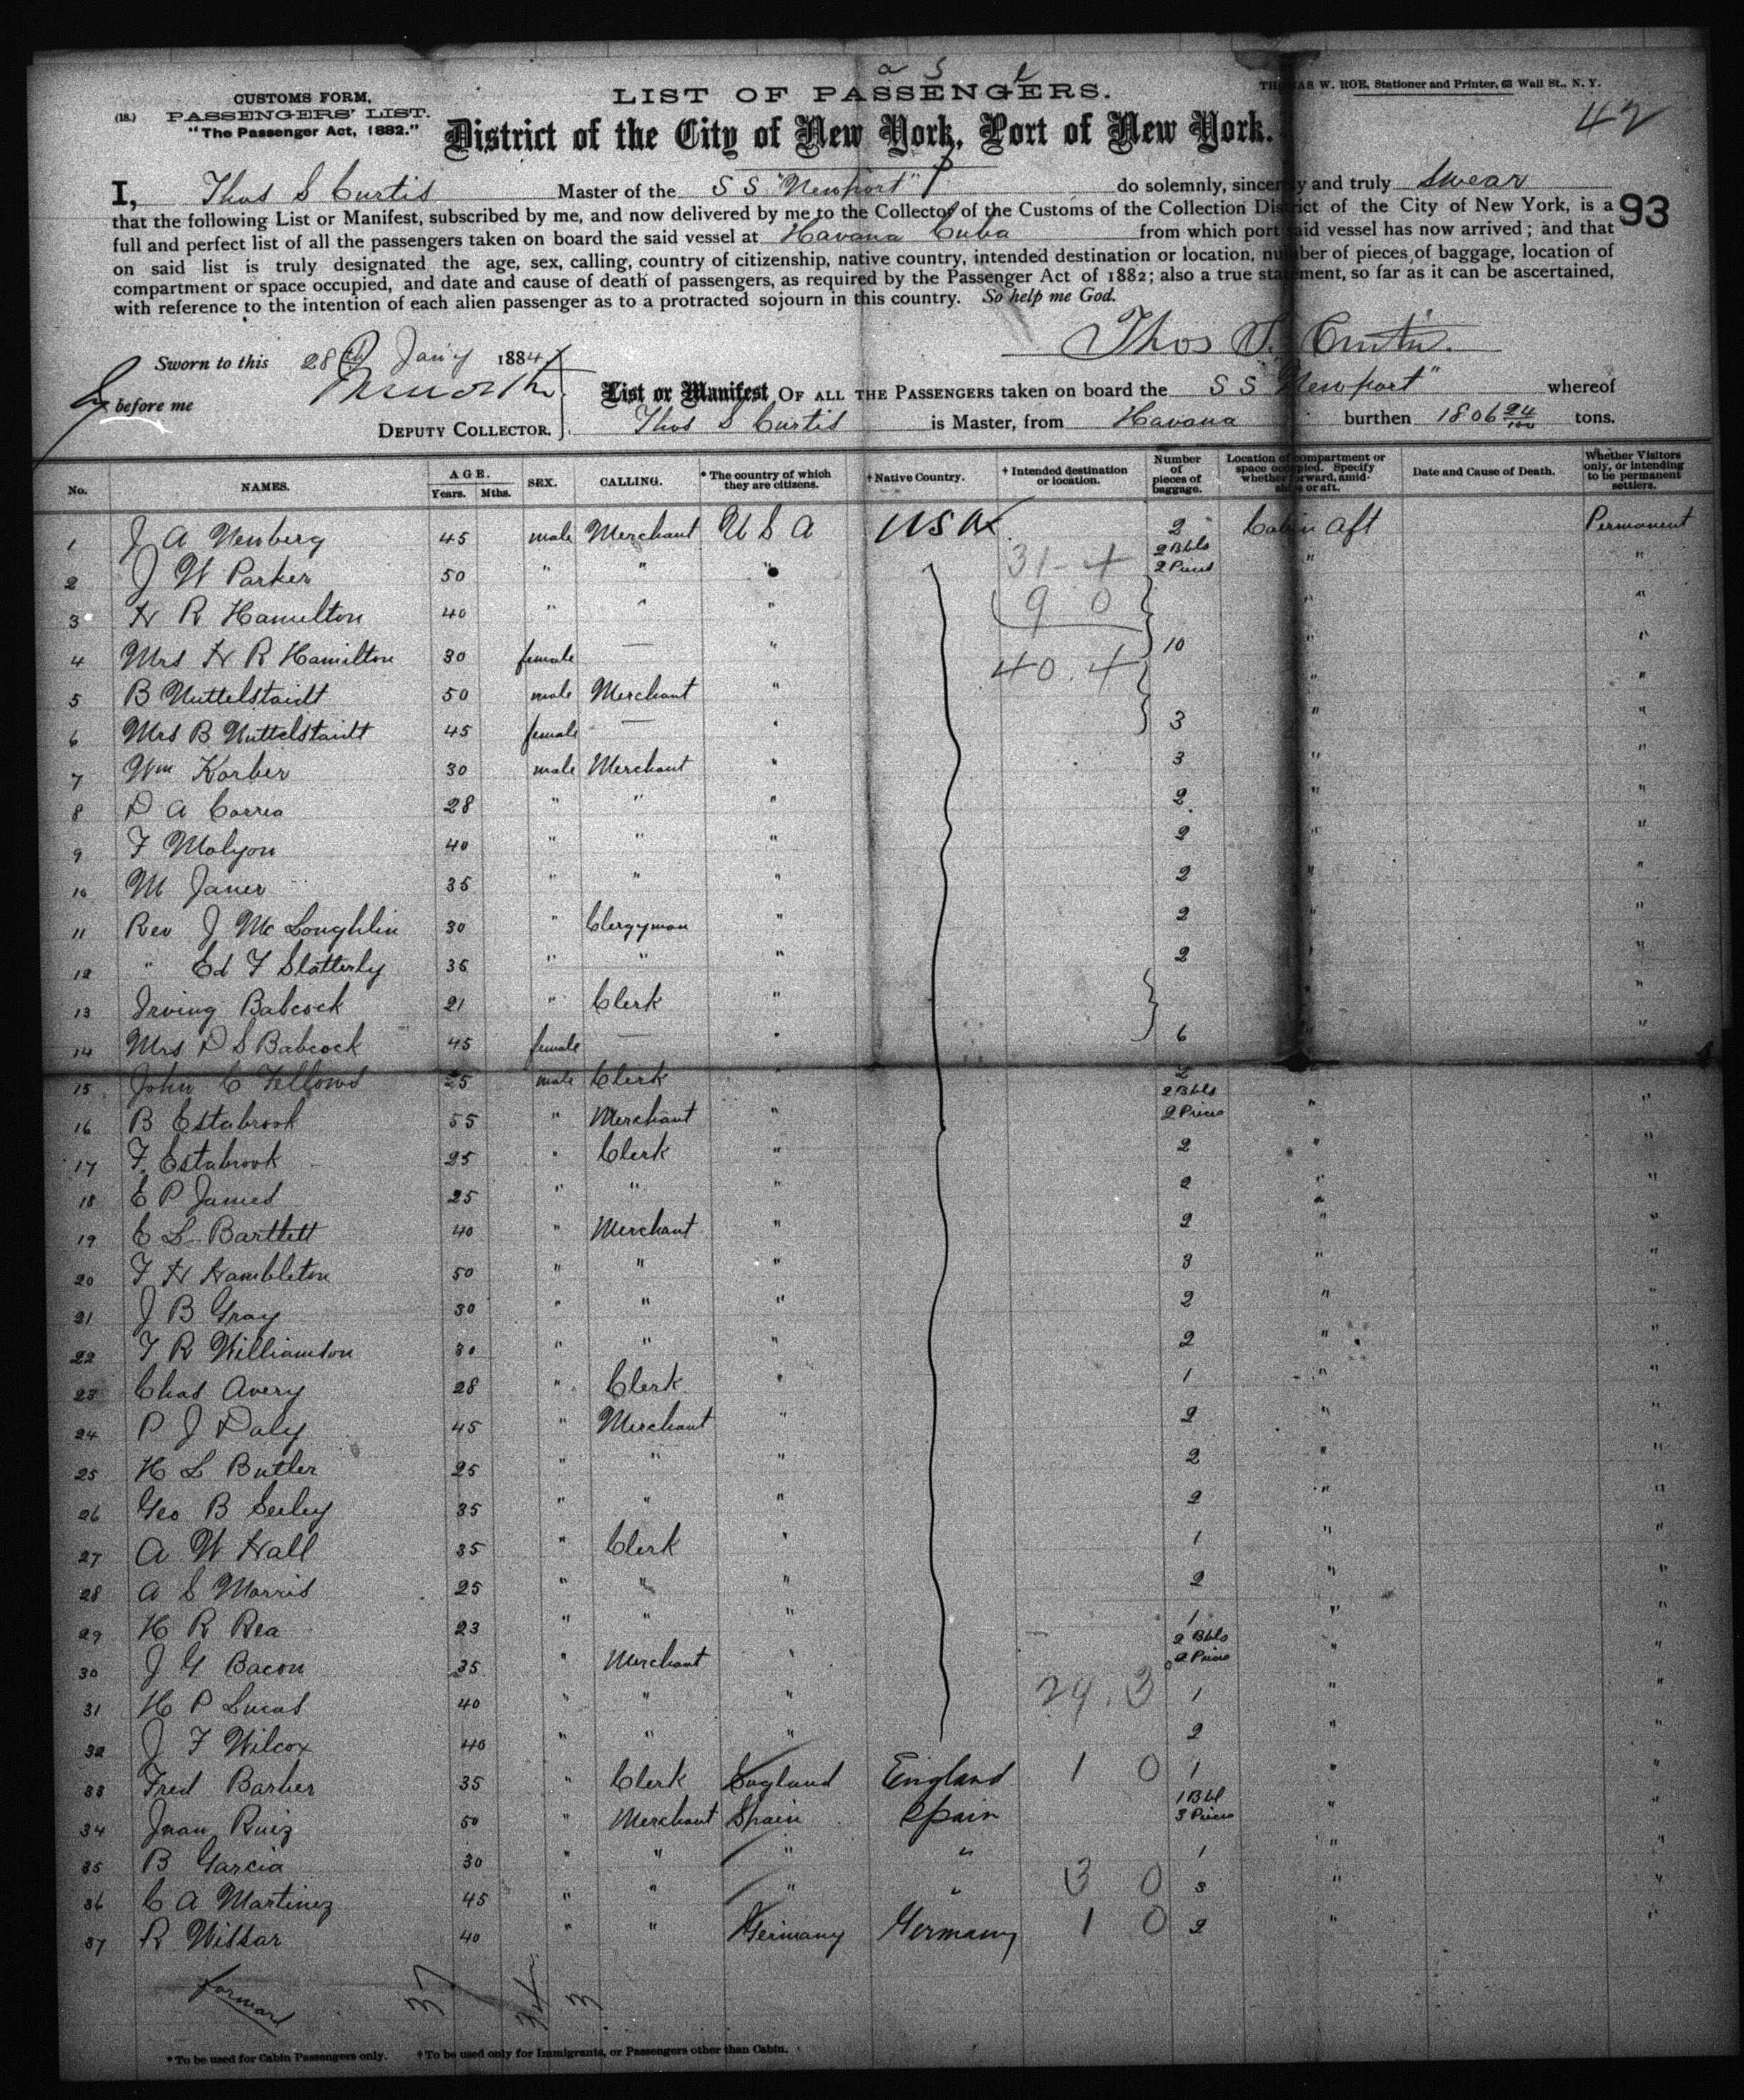 CUSTOMS FORM,
(18.) PASSENGERS' LIST.
"The Passenger Act, 1882."
LIST OF PASSENGERS.
THOMAS W. ROE, Stationer and Printer, 63 Wall St., N. Y.
42
District of the City of New York, Port of New York.
I, Thos S Curtis Master of the S S "Newport" do solemnly, sincerely and truly swear
that the following List or Manifest, subscribed by me, and now delivered by me to the Collector of the Customs of the Collection District of the City of New York, is a
93
full and perfect list of all the passengers taken on board the said vessel at Havana Cuba from which port said vessel has now arrived; and that
on said list is truly designated the age, sex, calling, country of citizenship, native country, intended destination or location, number of pieces of baggage, location of
compartment or space occupied, and date and cause of death of passengers, as required by the Passenger Act of 1882; also a true statement, so far as it can be ascertained,
with reference to the intention of each alien passenger as to a protracted sojourn in this country. So help me God.
Thos S. Curtis.
Sworn to this 28th Jan'y 1884
before me
DEPUTY COLLECTOR.
List or Manifest OF ALL THE PASSENGERS taken on board the S S "Newport" whereof
Thos S Curtis is Master, from Havana burthen 1806 24/100 tons.
No. NAMES. AGE. Years. Mths. SEX. CALLING. * The country of which they are citizens. † Native Country. † Intended destination or location. Number of pieces of baggage. Location of compartment or space occupied. Specify whether forward, amidships or aft. Date and Cause of Death. Whether Visitors only, or intending to be permanent settlers.
1 J A Newberg 45 male Merchant U S A USA 2 Cabin Aft Permanent
2 J W Parker 50 " " " 31-4 2 Bbls 2 Pieces " "
3 H R Hamilton 40 " " " 9 0 " "
4 Mrs H R Hamilton 30 female — " 40.4 10 " "
5 B Nuttelstaidt 50 male Merchant " " "
6 Mrs B Nuttelstaidt 45 female — " 3 " "
7 Wm Korber 30 male Merchant " 3 " "
8 D A Correa 28 " " " 2 " "
9 F Malyon 40 " " " 2 " "
10 M Janer 35 " " " 2 " "
11 Rev J Mc Loughlin 30 " Clergyman " 2 " "
12 " Ed F Slatterly 35 " " " 2 " "
13 Irving Babcock 21 " Clerk " " "
14 Mrs D S Babcock 45 female — " 6 " "
15 John C Fellows 25 male Clerk " 2
16 B Estabrook 55 " Merchant " 2 Bbls 2 Pieces " "
17 F. Estabrook 25 " Clerk " 2 " "
18 E P James 25 " " " 2 " "
19 E L Bartlett 40 " Merchant " 2 " "
20 F H Hambleton 50 " " " 3 " "
21 J B Gray 30 " " " 2 " "
22 F R Williamson 30 " " " 2 " "
23 Chas Avery 28 " Clerk " 1 " "
24 P J Daly 45 " Merchant " 2 " "
25 H L Butler 25 " " " 2 " "
26 Geo B Seeley 35 " " " 2 " "
27 A W Hall 35 " Clerk " 1 " "
28 A S Morris 25 " " " 2 " "
29 H R Rea 23 " " " 1 " "
30 J G Bacon 35 " Merchant " 2 Bbls 2 Pieces " "
31 H P Lucas 40 " " " 29.3 1 " "
32 J F Wilcox 40 " " " 2 " "
33 Fred Barber 35 " Clerk England England 1 0 1 " "
34 Juan Ruiz 50 " Merchant Spain Spain 1 Bbl 3 Pieces " "
35 B Garcia 30 " " " " 1 " "
36 C A Martinez 45 " " " " 3 0 3 " "
37 R Wissar 40 " " Germany Germany 1 0 2 " "
Forward 37 34 3
* To be used for Cabin Passengers only. † To be used only for Immigrants, or Passengers other than Cabin.